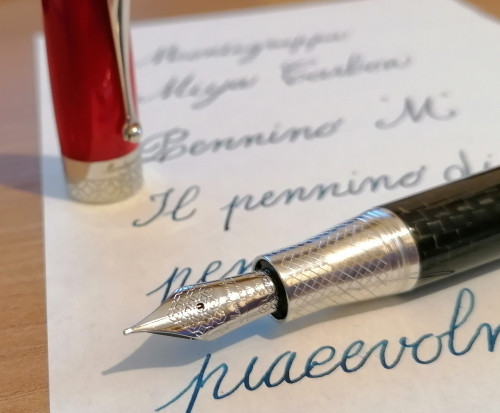 Montegrappa
Miya Carbon
Pennino "M"
Il pennino di
pen
piacevolm